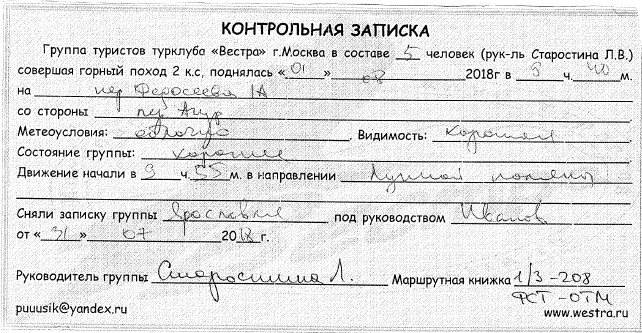 КОНТРОЛЬНАЯ ЗАПИСКА
Группа туристов турклуба «Вестра» г.Москва в составе 5 человек (рук-ль Старостина Л.В.)
совершая горный поход 2 к.с, поднялась «01» 08 2018г в 9 ч. 40 м.
на пер Федосеева 1А
со стороны пер Агур
Метеоусловия: облачно. Видимость: хорошая
Состояние группы: хорошее
Движение начали в 9 ч. 55 м. в направлении Лунной поляны
Сняли записку группы под руководством Иванов
от «31» 07 2018 г.
Руководитель группы Старостина Л. Маршрутная книжка 1/3-208
ФСТ-ОТМ
puuusik@yandex.ru www.westra.ru